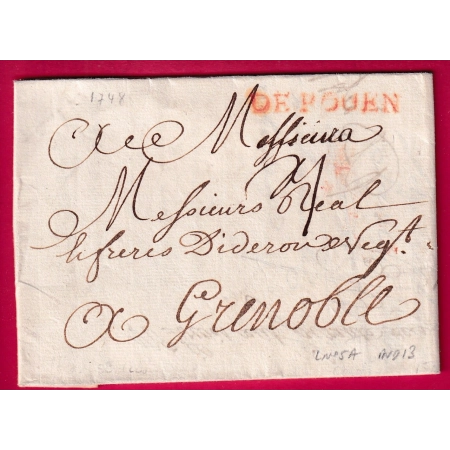 1748
DE ROUEN
A Messieurs
Messieurs Real
& freres Dideron & Negts.
a Grenoble
L No5A IND13